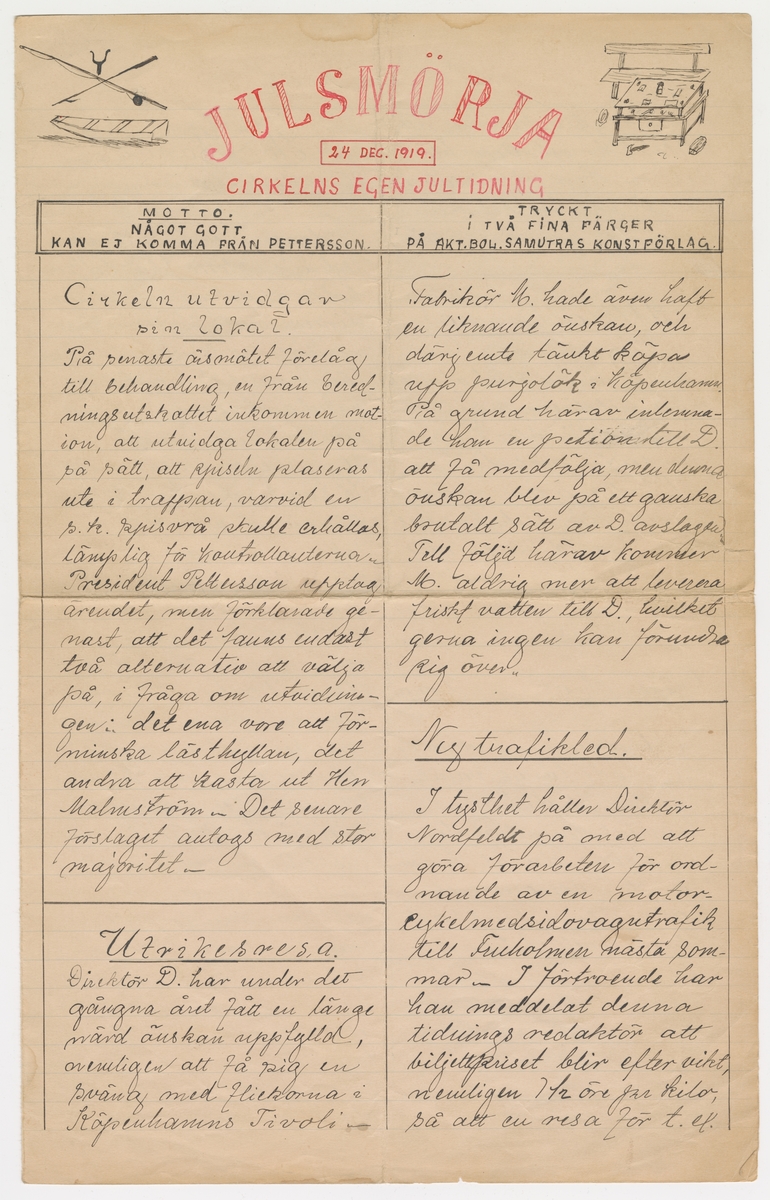 JULSMÖRJA
24 DEC. 1919.
CIRKELNS EGEN JULTIDNING
MOTTO.
NÅGOT GOTT
KAN EJ KOMMA FRÅN PETTERSSON.
TRYCKT
I TVÅ FINA FÄRGER
PÅ AKT.BOL. SAMUTRAS KONSTFÖRLAG.
Cirkeln utvidgar
sin lokal.
På senaste årsmötet förelåg
till behandling, en från bered-
ningsutskottet inkommen mot-
ion, att utvidga lokalen på
så sätt, att spiseln plaseras
ute i trappan, varvid en
s.k. spisvrå skulle erhållas,
lämplig för kontrollanterna.
President Pettersson upptog
ärendet, men förklarade ge-
nast, att det fanns endast
två alternativ att välja
på, i fråga om utvidnin-
gen: det ena vore att för-
minska lästhyllan, det
andra att kasta ut Herr
Malmström — Det senare
förslaget antogs med stor
majoritet —
Utrikesresa.
Direktör D. har under det
gångna året fått en länge
närd önskan uppfylld,
nemligen att få sig en
sväng med flickorna i
Köpenhamns Tivoli —
Fabrikör M. hade även haft
en liknande önskan, och
därjemte tänkt köpa
upp purjolök i Köpenhamn.
På grund härav inlemna-
de han en petion till D.
att få medfölja, men denna
önskan blev på ett ganska
brutalt sätt av D. avslagen.
Till följd härav kommer
M. aldrig mer att leverera
friskt vatten till D., hvilket
gerna ingen kan förundra
sig över.
Ny trafikled.
I tysthet håller Direktör
Nordfeldt på med att
göra förarbeten för ord-
nande av en motor-
cykelmedsidovagntrafik
till Fruholmen nästa som-
mar — I förtroende har
han meddelat denna
tidnings redaktör att
biljettpriset blir efter vikt,
nemligen 7½ öre per kilo,
så att en resa för t. ex.